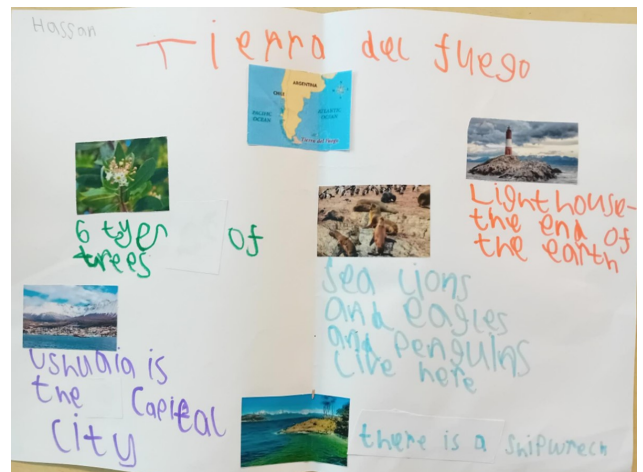 Hassan
Tierra del fuego
ARGENTINA
CHILE
PACIFIC
OCEAN
ATLANTIC
OCEAN
Tierra del Fuego
6 tyer of
trees
Lighthouse-
the end of
the earth
sea lions
and eagles
and penguins
live here
ushuaia is
the capital
city
there is a shipwrech